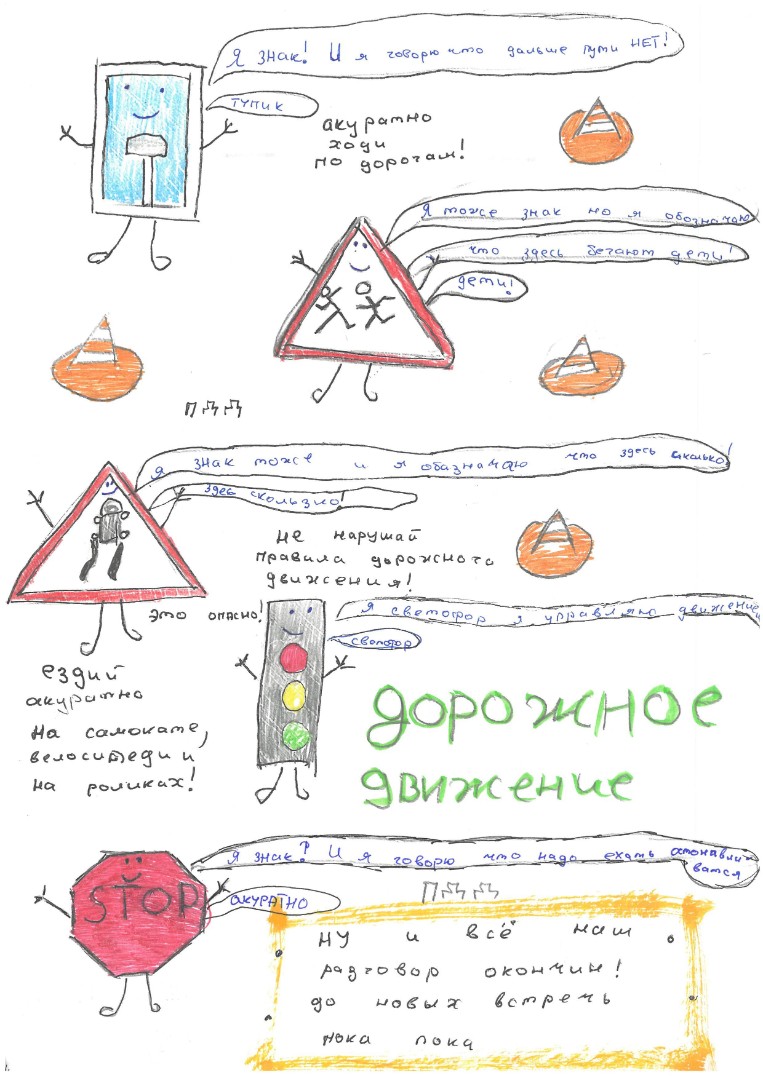 Я знак! И я говорю что дальше пути НЕТ!
ТУПИК
акуратно
ходи
по дорогам!
Я тоже знак но я обозначаю
что здесь бегают дети!
дети!
ПДД
Я знак тоже и я обазначаю что здесь сколько!
здесь скользко!
не нарушай
правила дорожного
движения!
это опасно!
Я светофор я управляю движением
светофор
ездий
акуратно
на самокате,
велосипеди и
на роликах!
дорожное
движение
Я знак! И я говорю что надо ехать
ватся
STOP
АКУРАТНО
ПДД
НУ и всё наш
разговор окончин!
до новых встречь
пока пока